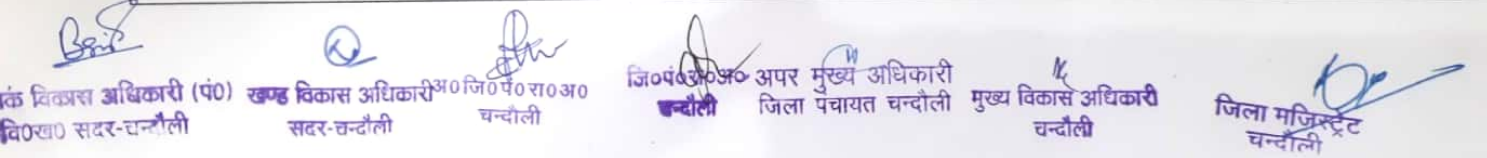 कं विकास अधिकारी (पं०)
वि०ख० सदर-चन्दौली
खण्ड विकास अधिकारी
सदर-चन्दौली
अ०जि०पं०रा०अ०
चन्दौली
जि०पं०रा०अ०
चन्दौली
अपर मुख्य अधिकारी
जिला पंचायत चन्दौली
मुख्य विकास अधिकारी
चन्दौली
जिला मजिस्ट्रेट
चन्दौली